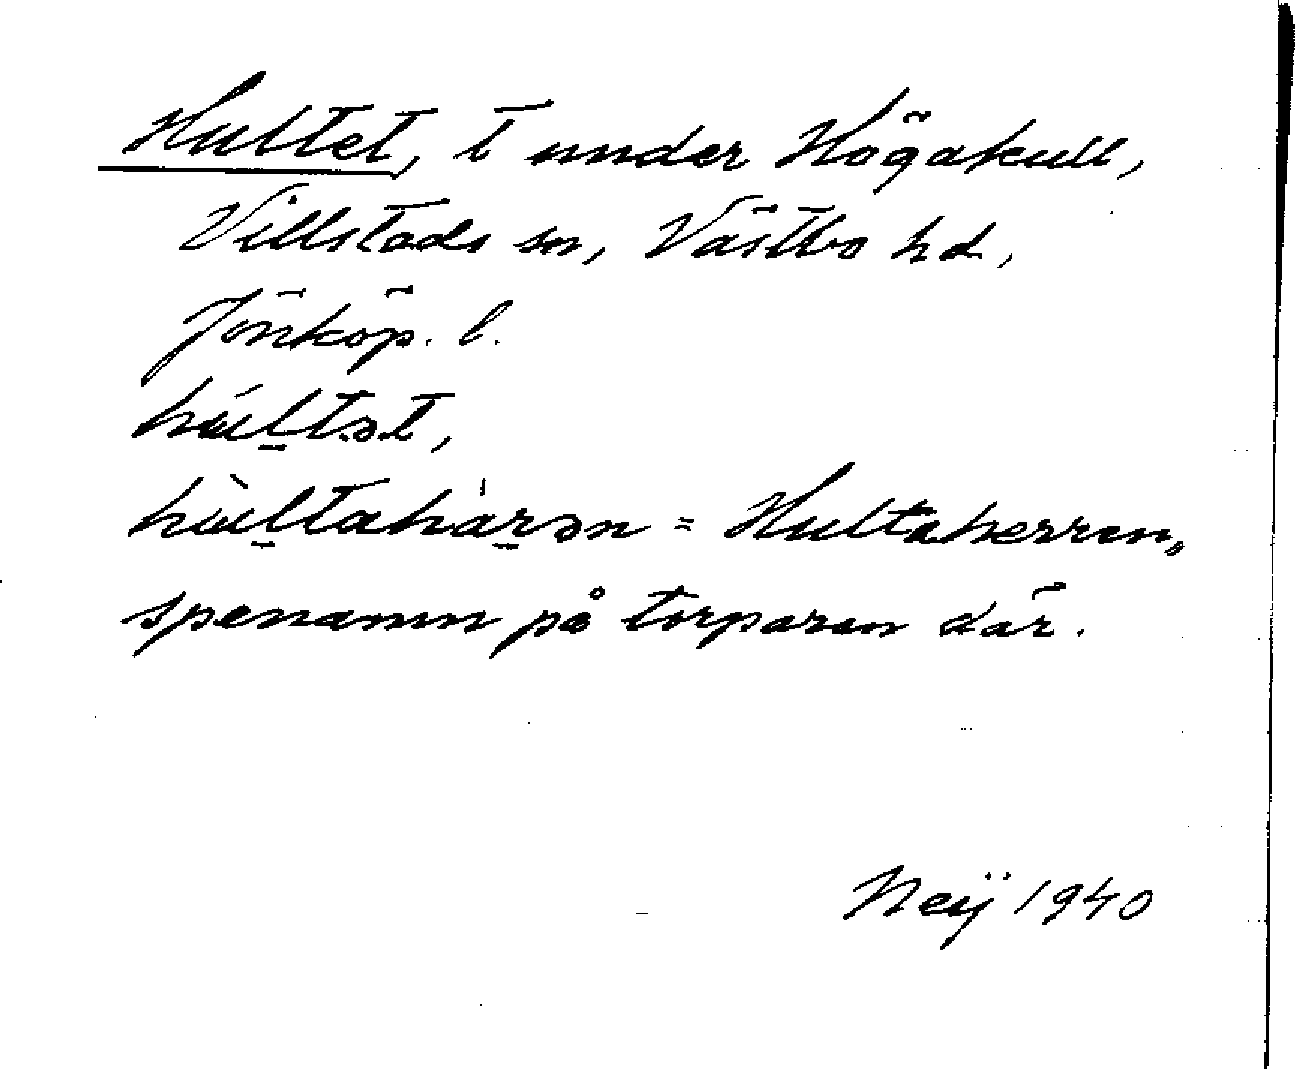 Hultet, t under Högakull,
Villstads sn, Västbo hd,
Jönköp. l.
húl̠tət,
hùl̠tahàr̠ən = Hultaherren,
spenamn på torparen där.
Neÿ 1940